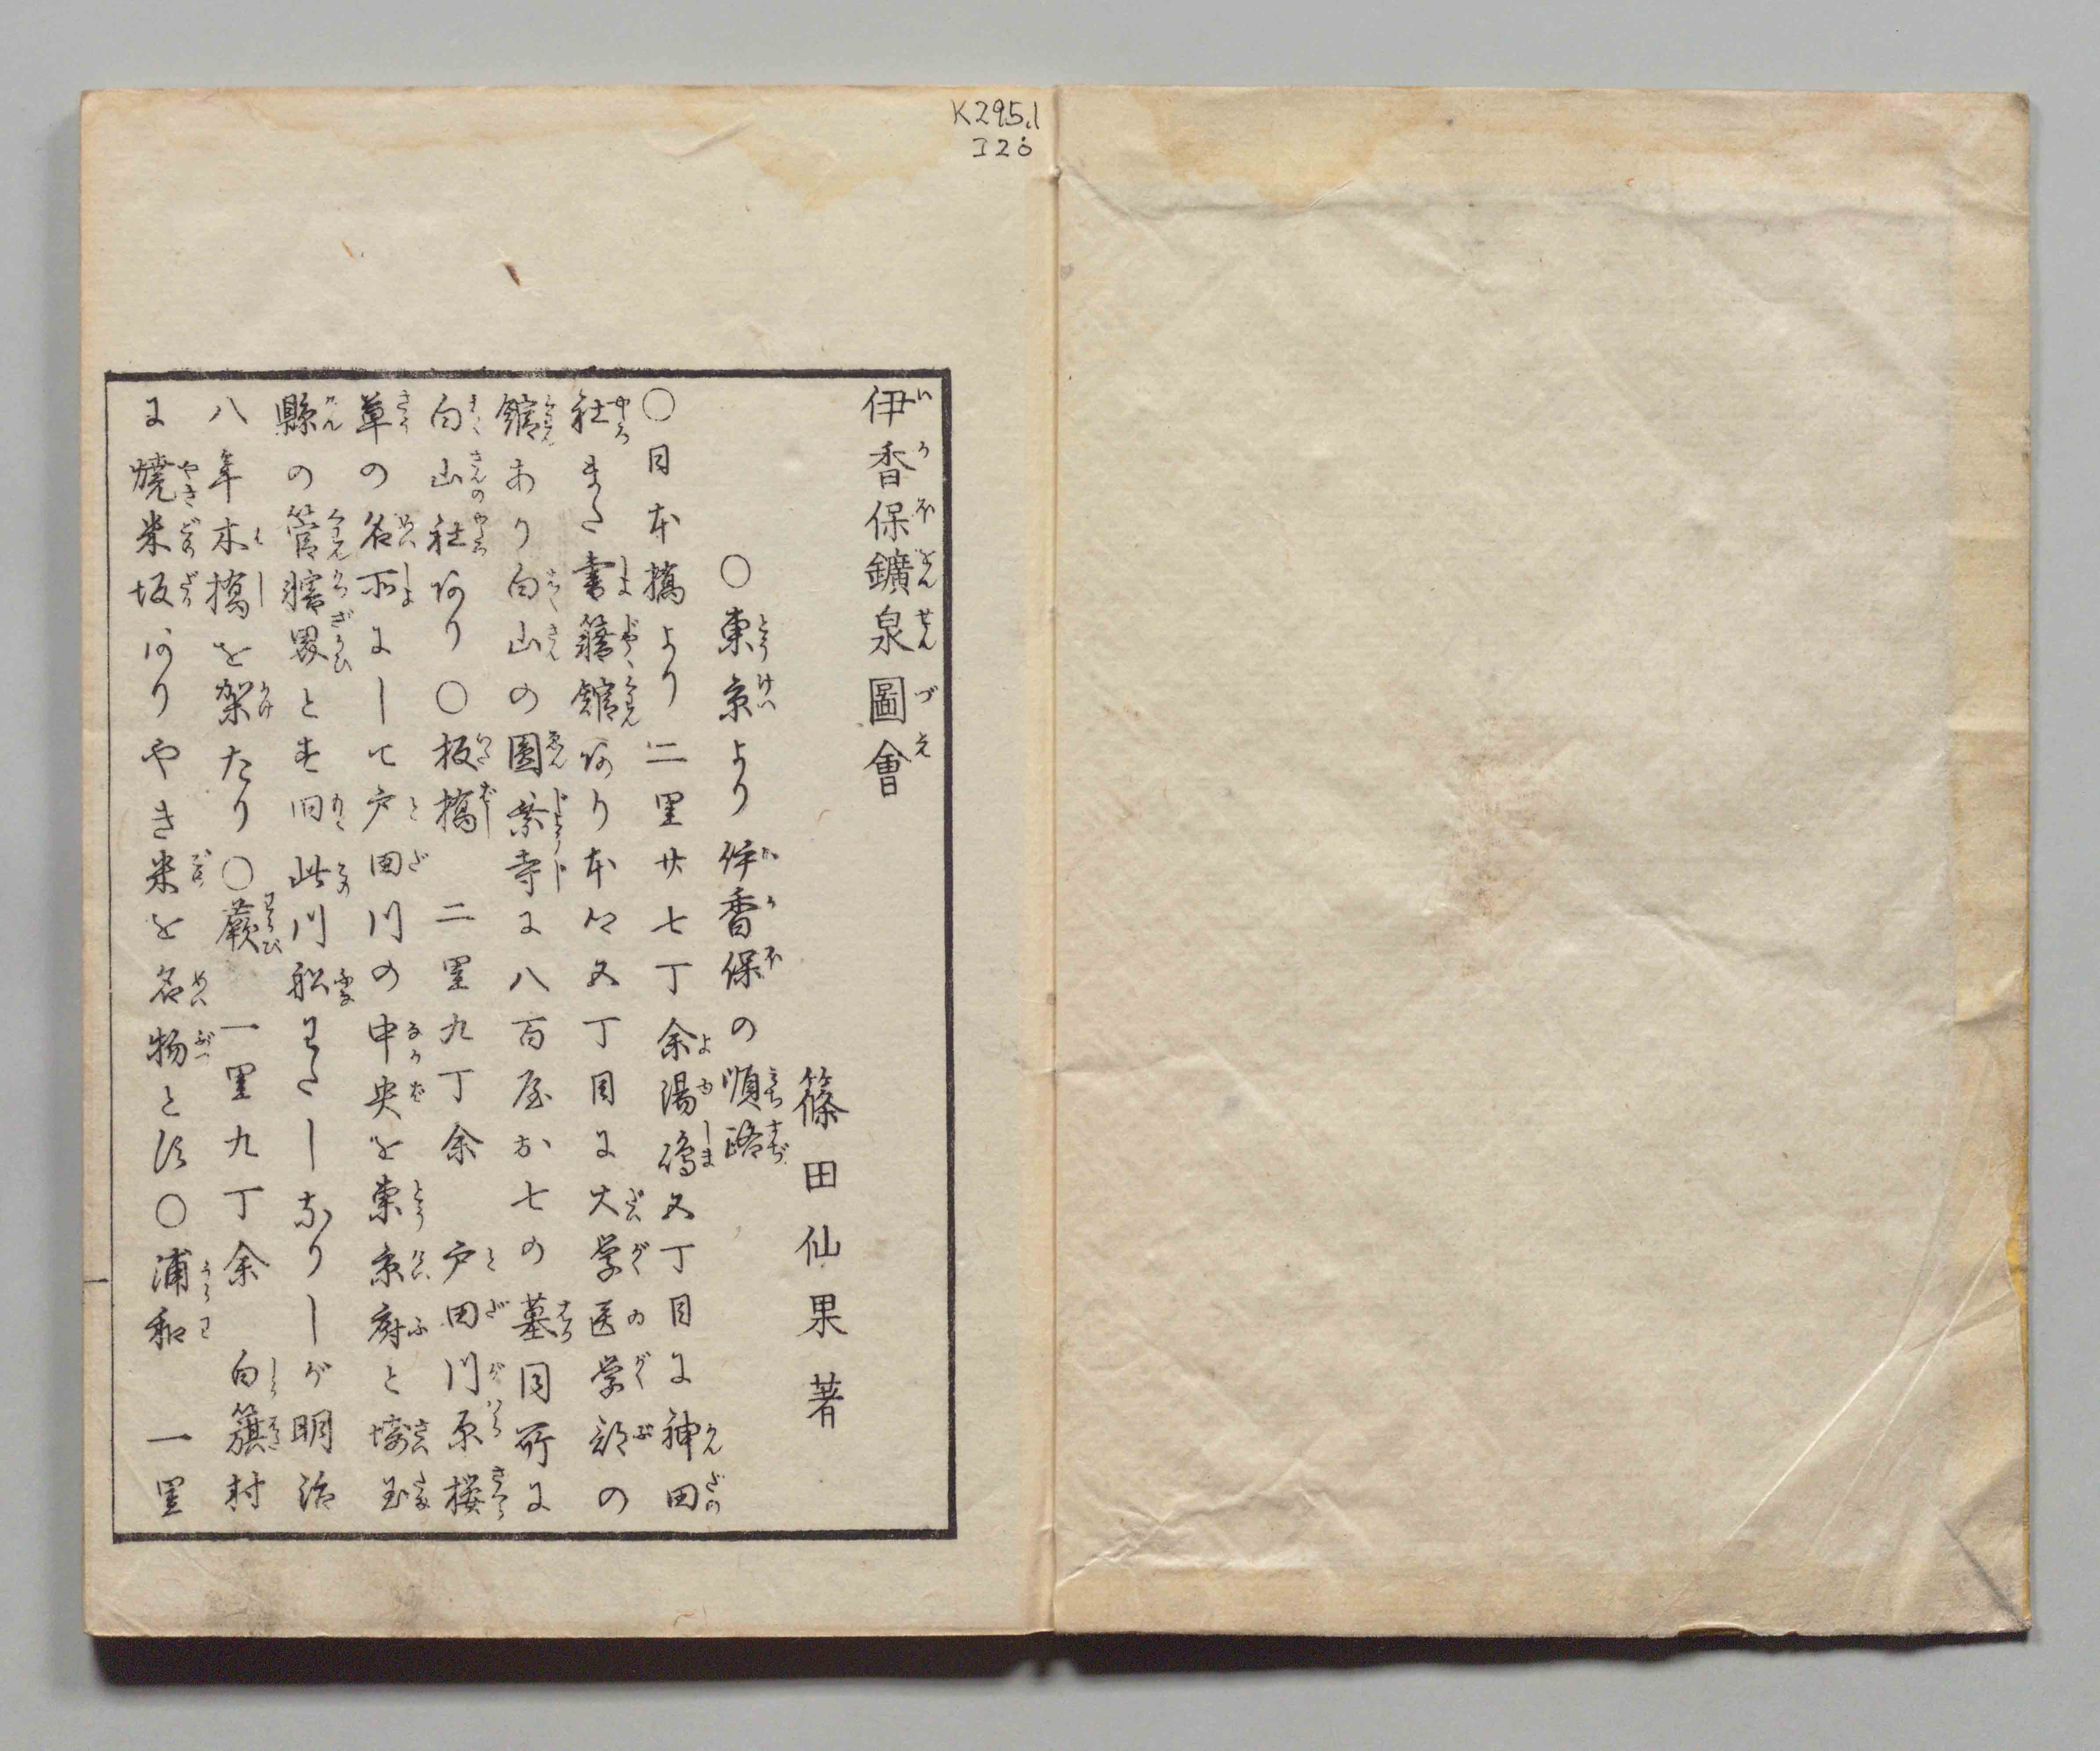 K295.1
I20
伊香保鑛泉圖會
篠田仙果著
○東京より伊香保の順路
○日本橋より二里廿七丁余湯嶋五丁目に神田
社また書籍館あり本郷五丁目に大学医学部の
館あり白山の圓乗寺に八百屋お七の墓同所に
白山社あり○板橋 二里九丁余 戸田川原桜
草の名所にして戸田川の中央を東京府と埼玉
縣の管轄界とす旧此川船わたしなりしが明治
八年木橋を架たり○蕨 一里九丁余 白籏村
に焼米坂ありやき米を名物とす○浦和 一里
一